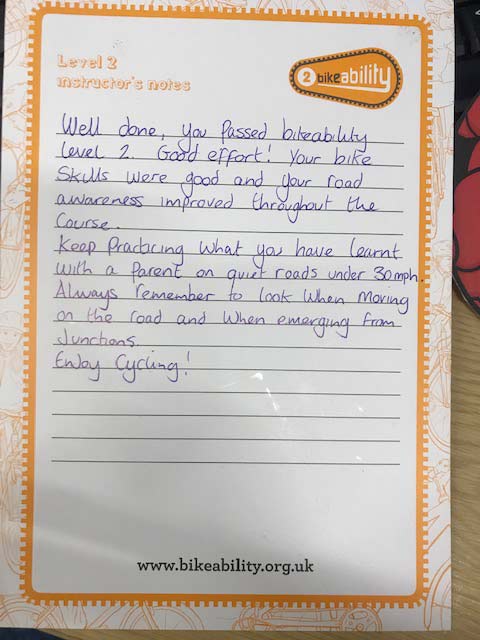 Level 2
instructor's notes
2 bikeability
Well done, you Passed bikeability
Level 2. Good effort! Your bike
Skills were good and your road
awareness improved throughout the
Course.
Keep Practicing What you have learnt
With a Parent on quiet roads under 30mph.
Always remember to look When Moving
on the road and When emerging From
Junctions.
Enjoy Cycling!
www.bikeability.org.uk